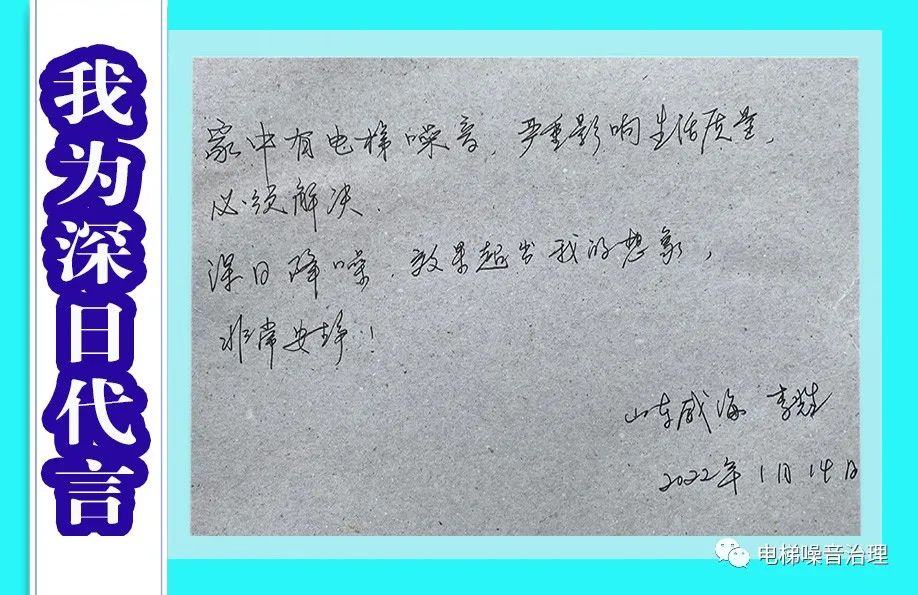 我为深日代言
家中有电梯噪音，严重影响生活质量，
必须解决.
深日降噪，效果超出我的想象，
非常安静！
山东威海 李
2022年1月14日
电梯噪音治理